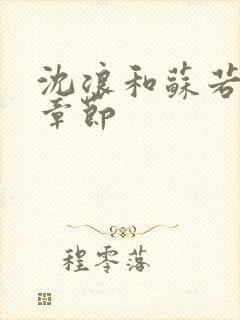 沈浪和蘇若
章節
程零落